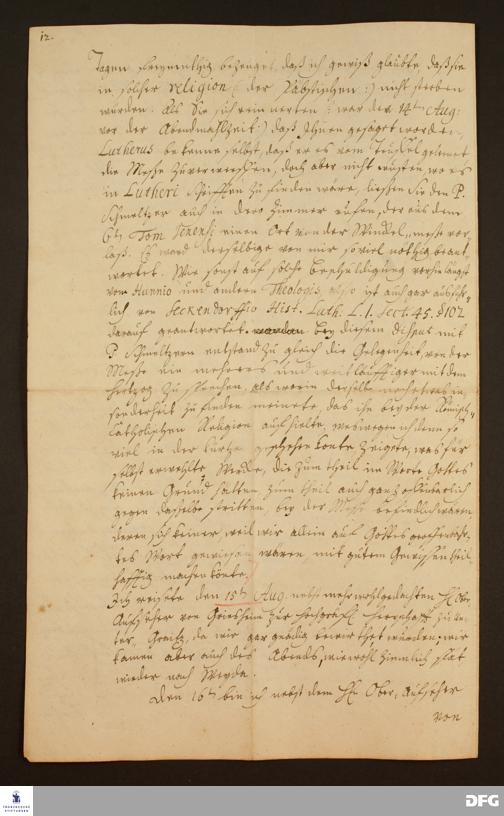 12.
Tagen freymüthig bezeuget, daß ich gewiß glaubte daß sie
in solcher religion (: der Päbstischen :) nicht sterben
würden. Als Sie sich erinnerten (: war der 14ten Aug:
vor der Abendmahlzeit :) daß Ihnen gesaget worden,
Lutherus bekenne selbst, daß er es vom Teuffel gelernet
die Messe zu verwerffen, doch aber nicht wüsten, wo es
in Lutheri Schrifften zu finden wäre, liessen Sie den P.
Schmeltzer auch in dero Zimmer ruffen, der aus dem
6ten Tom Jenensi einen Ort von der Winckel-messe vor-
laß. Es ward derselbige von mir so viel nöthig beant-
wortet. Wie sonst auf solche Beschuldigung vorlängst
von Hunnio und andern Theologis, also ist auch gar ausführ-
lich von Seckendorffio Hist. Luth. L. 1. Sect. 45. § 102
darauf geantwortet. Bey diesem Disput mit
P. Schmeltzern entstand zugleich die Gelegenheit, von der
Messe ein mehrers und weitläuffiger mit dem
Hertzog zu sprechen, als worin derselbe noch etwas in-
sonderheit zu finden meinete, das ihn bey der Römisch-
Catholischen Religion aufhielte, weswegen ich denn so
viel in der Kürtze geschehen konte zeigete, was für
selbst erwehlte Wercke, die zum theil im Worte Gottes
keinen Grund hätten, zum theil auch gantz offenbarlich
gegen dasselbe stritten, bey der Messe befindlich wären
deren sich keiner, weil wir allein auf Gottes geoffenbahr-
tes Wort gewiesen wären, mit gutem Gewissen theil-
hafftig machen könte.
Ich reisete den 15ten Aug. nebst mehr wohlgedachten H. Ober
Aufseher von Griesheim zur Hochgräfl. Herrschafft zu Un-
ter-Graitz, da wir gar gnädig bewirthet wurden, wir
kamen aber auch des Abends, wiewohl ziemlich spät
wieder nach Weyda.
Den 16ten bin ich nebst dem H. Ober-Aufseher
von
FRANCKESCHE
STIFTUNGEN
DFG